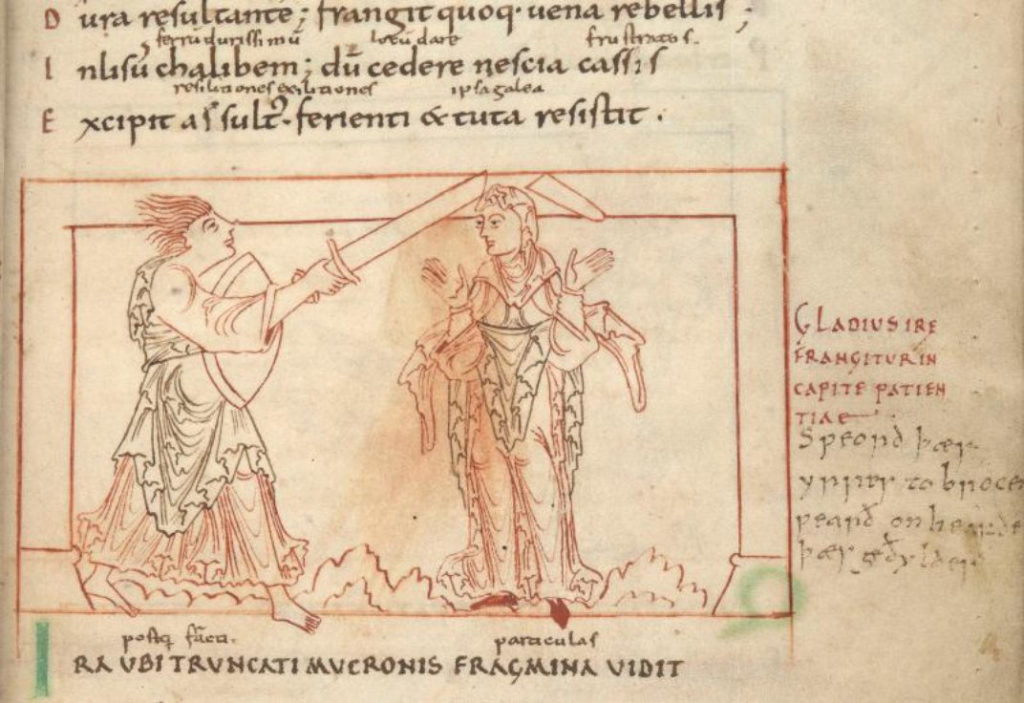 D ura resultante; frangit quoq· uena rebellis ;
ferrū durissimū locū dare frustratos.
I nlisū chalibem; dū cedere nescia cassis
resilitiones exilitiones ipsa galea
E xcipit assult᾽· ferienti & tuta resistit .
GLADIUS IRE
FRANGITUR IN
CAPITE PATIEN
TIAE
Sƿeord þæs
yrres to brocen
ƿeard on
þæs
postq̄
particulas
IRA UBI TRUNCATI MUCRONIS FRAGMINA VIDIT